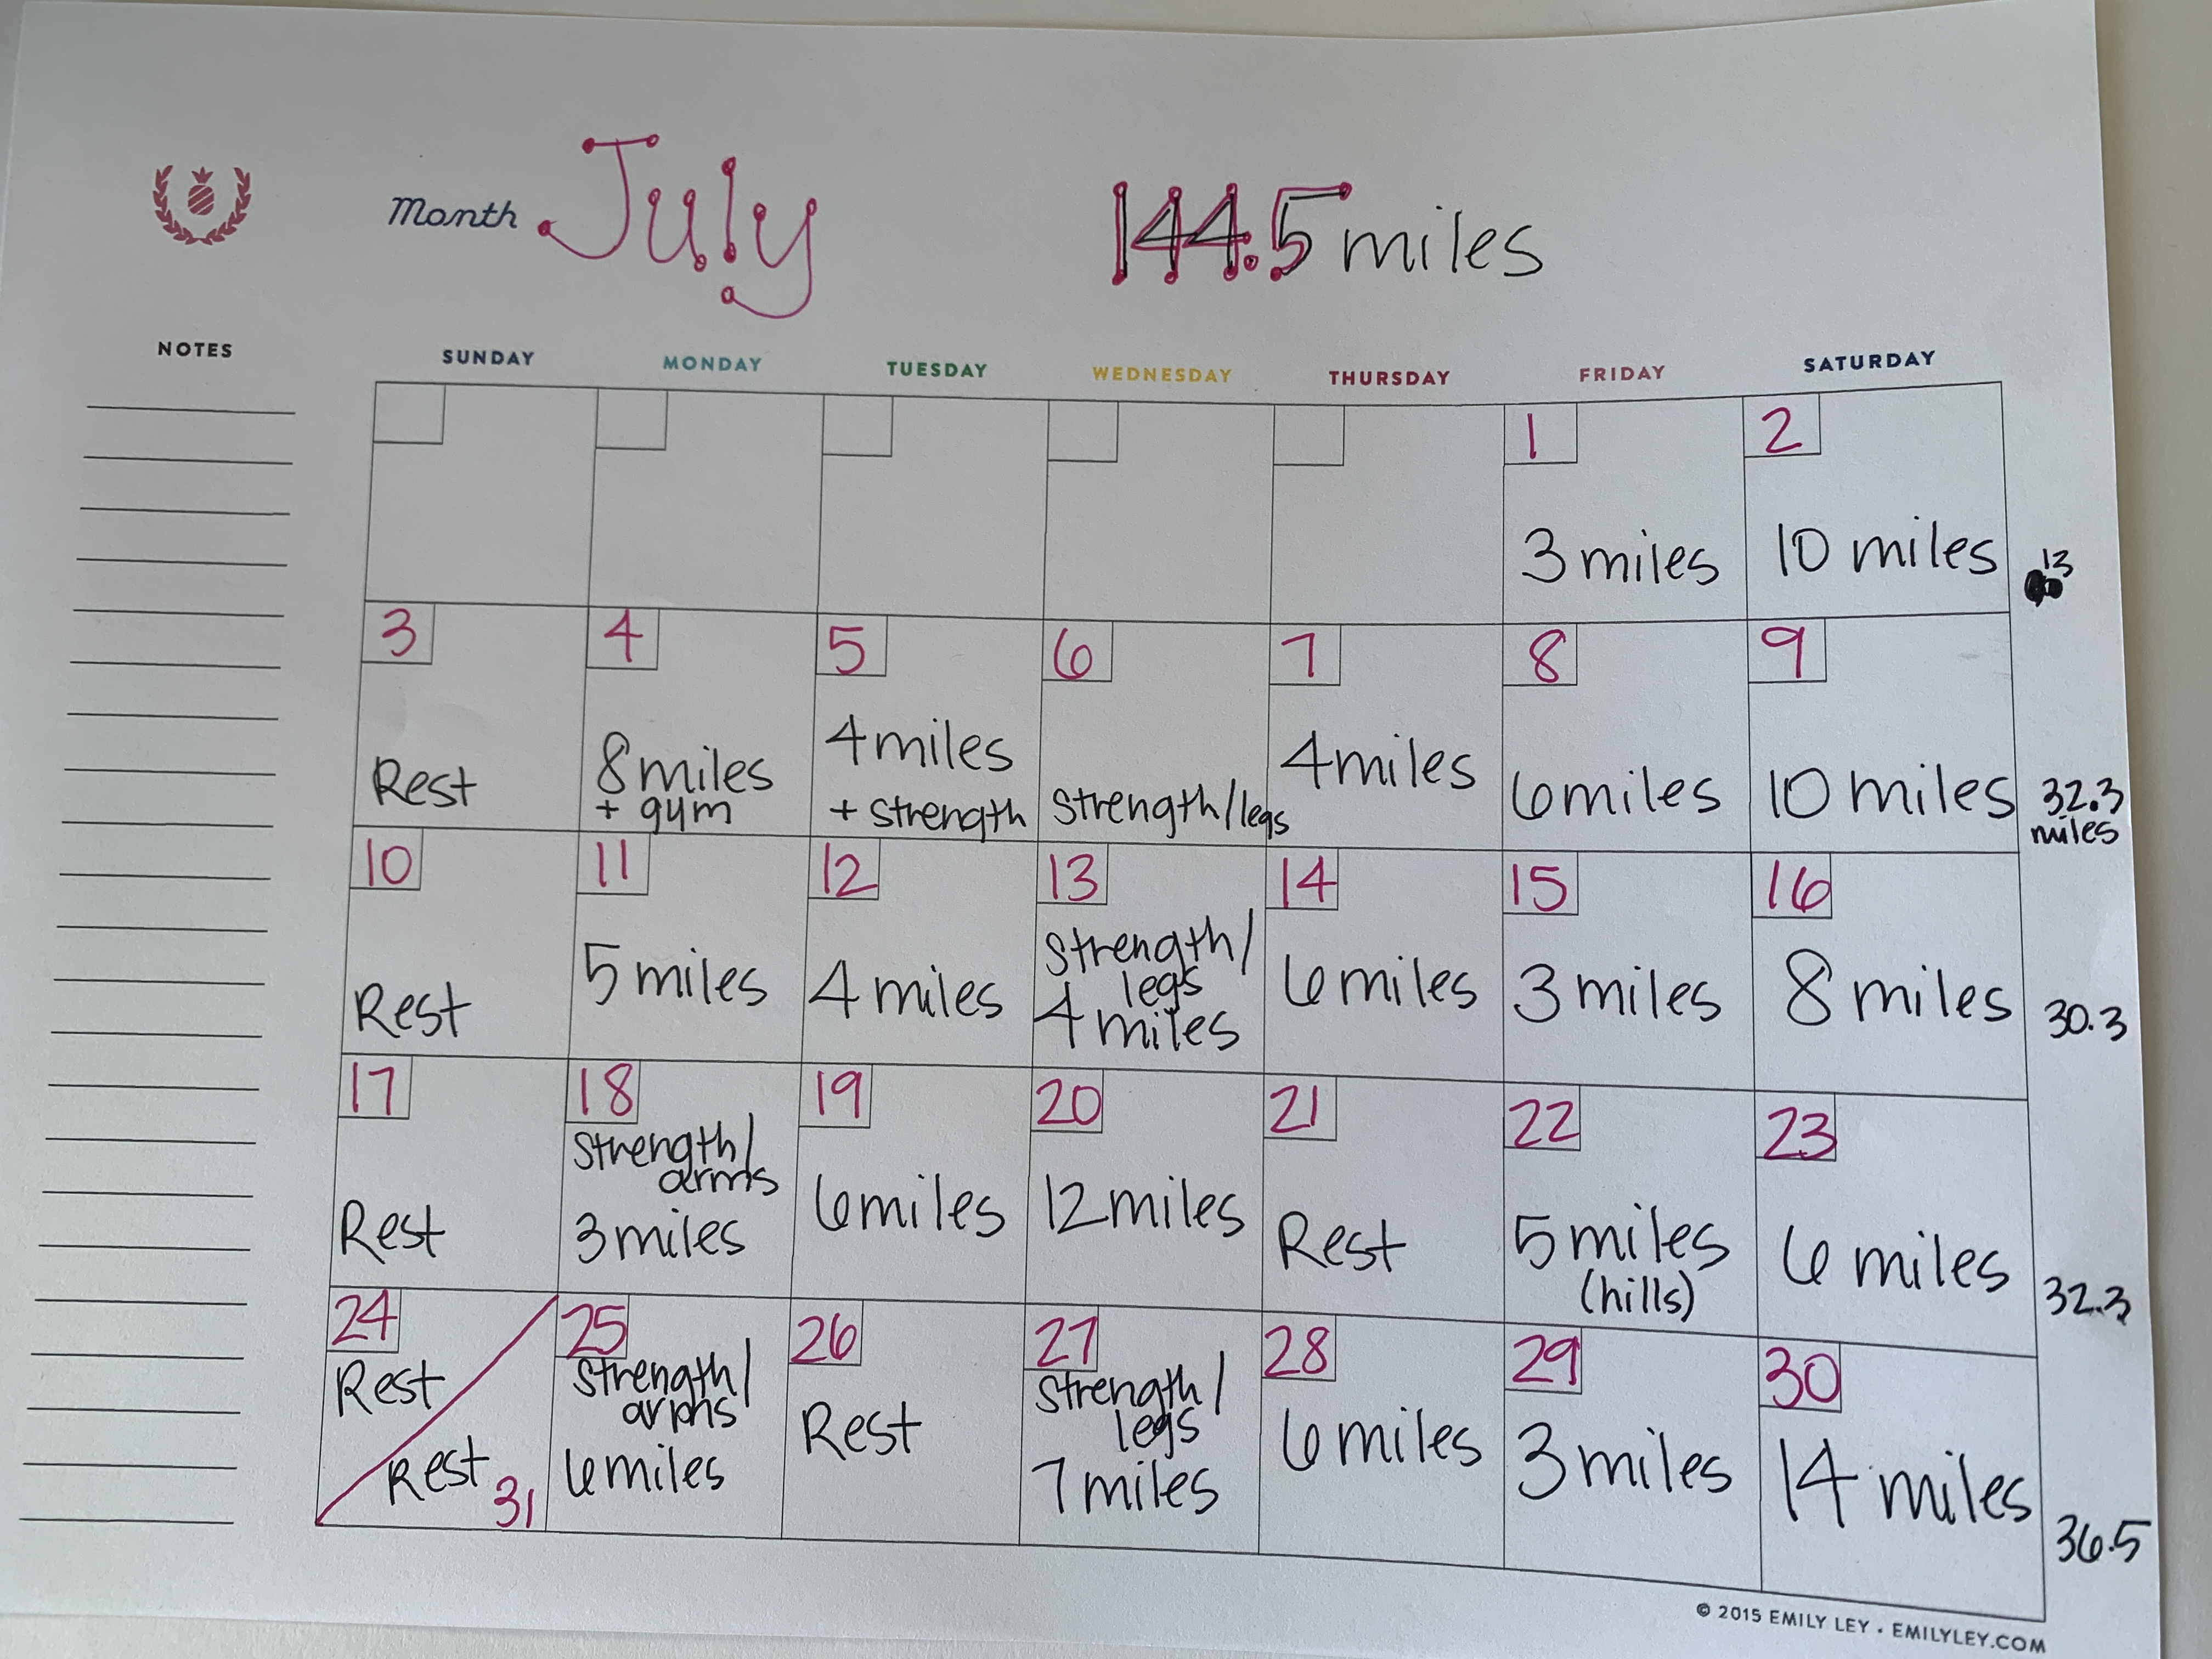 Month July
144.5 miles
NOTES
SUNDAY MONDAY TUESDAY WEDNESDAY THURSDAY FRIDAY SATURDAY
1
3 miles
2
10 miles
13
3
Rest
4
8 miles
+ gym
5
4 miles
+ strength
6
Strength/legs
7
4 miles
8
6 miles
9
10 miles
32.3
miles
10
Rest
11
5 miles
12
4 miles
13
Strength/
legs
4 miles
14
6 miles
15
3 miles
16
8 miles
30.3
17
Rest
18
Strength/
arms
3 miles
19
6 miles
20
12 miles
21
Rest
22
5 miles
(hills)
23
6 miles
32.3
24
Rest
Rest 31
25
Strength/
arms
6 miles
26
Rest
27
Strength/
legs
7 miles
28
6 miles
29
3 miles
30
14 miles
36.5
© 2015 EMILY LEY • EMILYLEY.COM